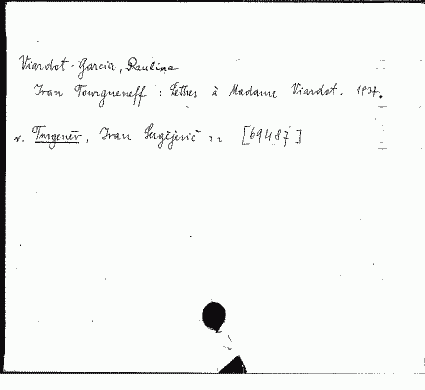 Viardot-Garcia, Paulina
Ivan Tourgueneff : Lettres à Madame Viardot. 1937.
v. Turgeněv, Ivan Sergějevič [69487]